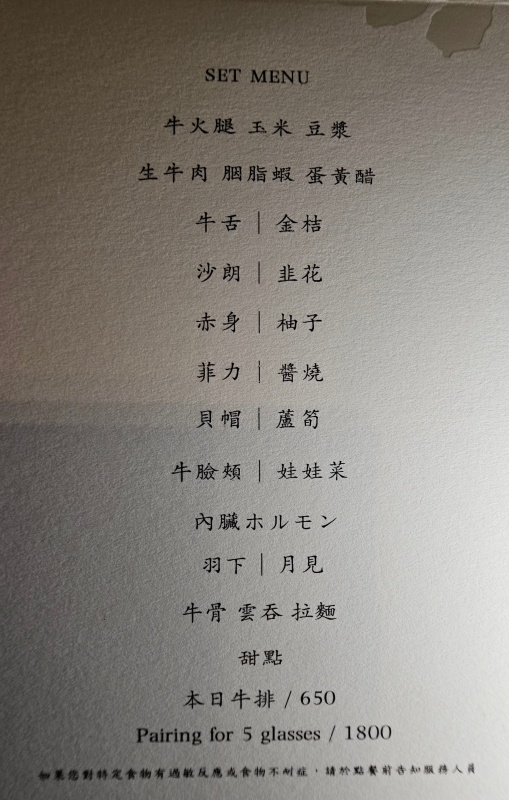 SET MENU
牛火腿 玉米 豆漿
生牛肉 胭脂蝦 蛋黃醋
牛舌｜金桔
沙朗｜韭花
赤身｜柚子
菲力｜醬燒
貝帽｜蘆筍
牛臉頰｜娃娃菜
內臟ホルモン
羽下｜月見
牛骨 雲吞 拉麵
甜點
本日牛排 / 650
Pairing for 5 glasses / 1800
如果您對特定食物有過敏反應或食物不耐症，請於點餐前告知服務人員